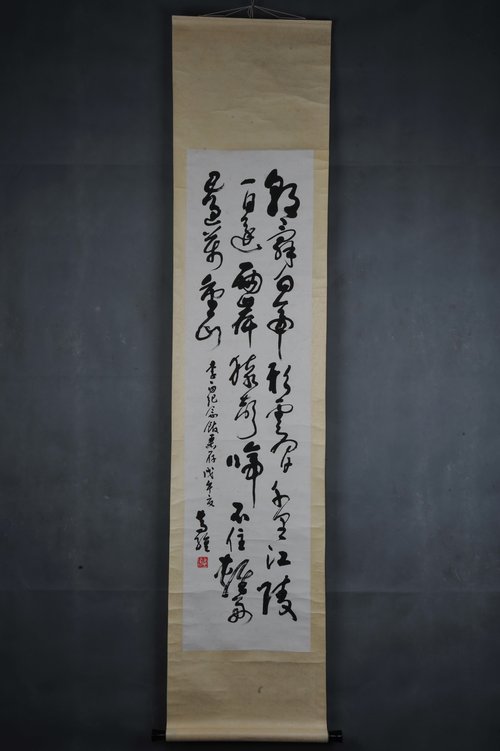 朝辭白帝彩雲间千里江陵
一日還兩岸猿聲啼不住輕舟
已過萬重山
李白纪念館惠存戊午夏